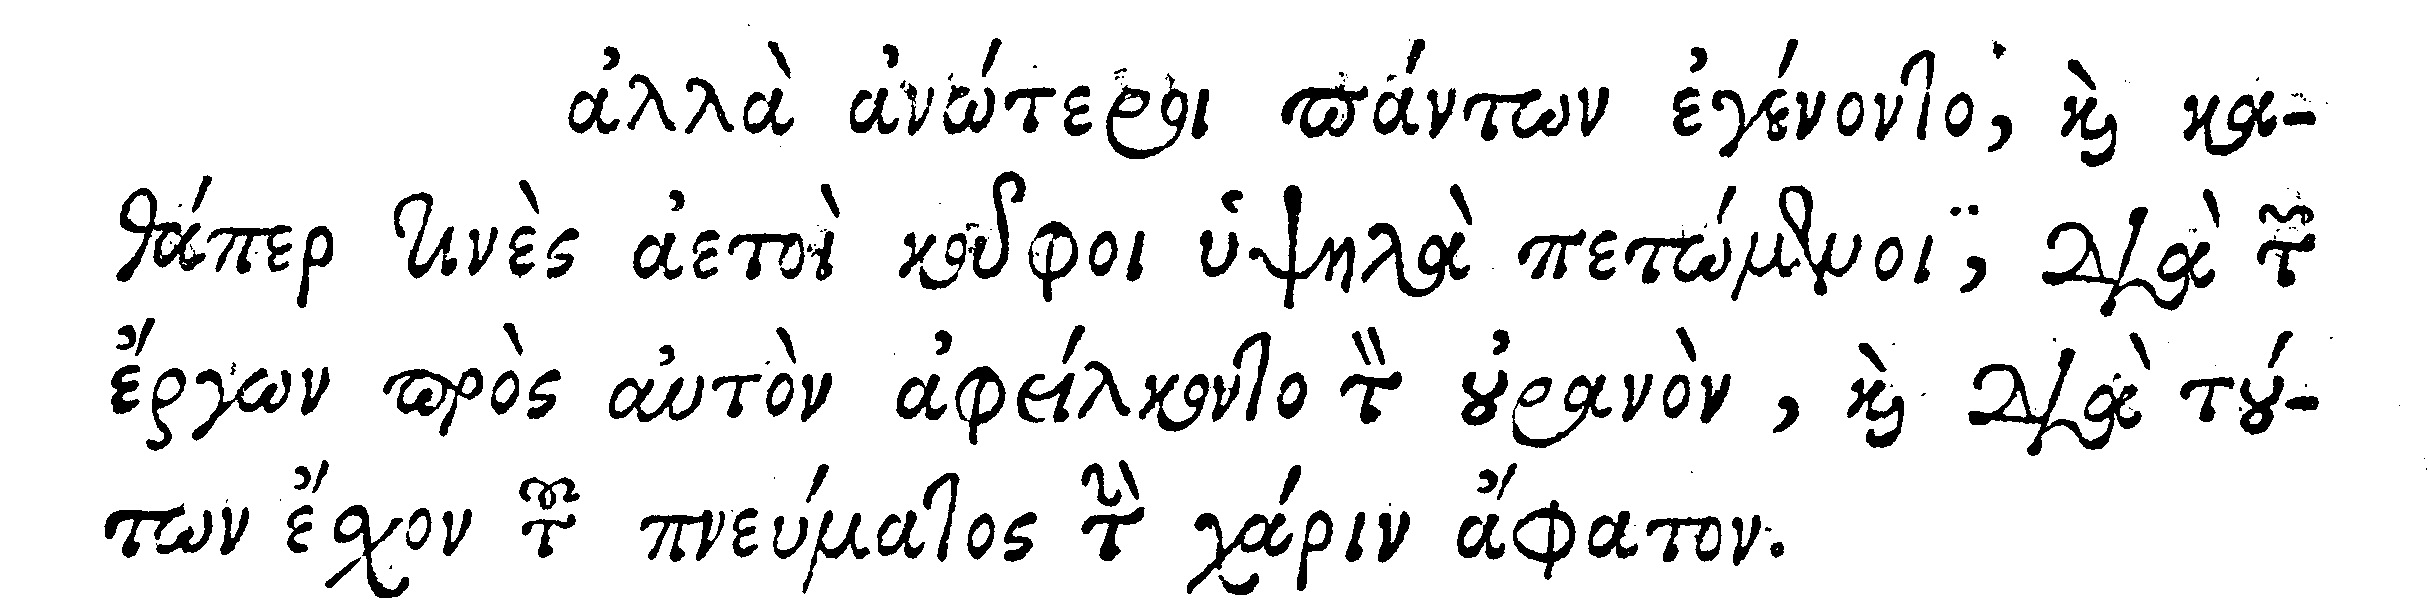 ἀλλὰ ἀνώτεροι πάντων ἐγένοντο, καὶ κα-
θάπερ τινὲς ἀετοὶ κοῦφοι ὑψηλὰ πετώμενοι, διὰ τῶν
ἔργων πρὸς αὐτὸν ἀφείλκοντο τὸν οὐρανὸν, καὶ διὰ τού-
των ἔχον τοῦ πνεύματος τὴν χάριν ἄφατον.